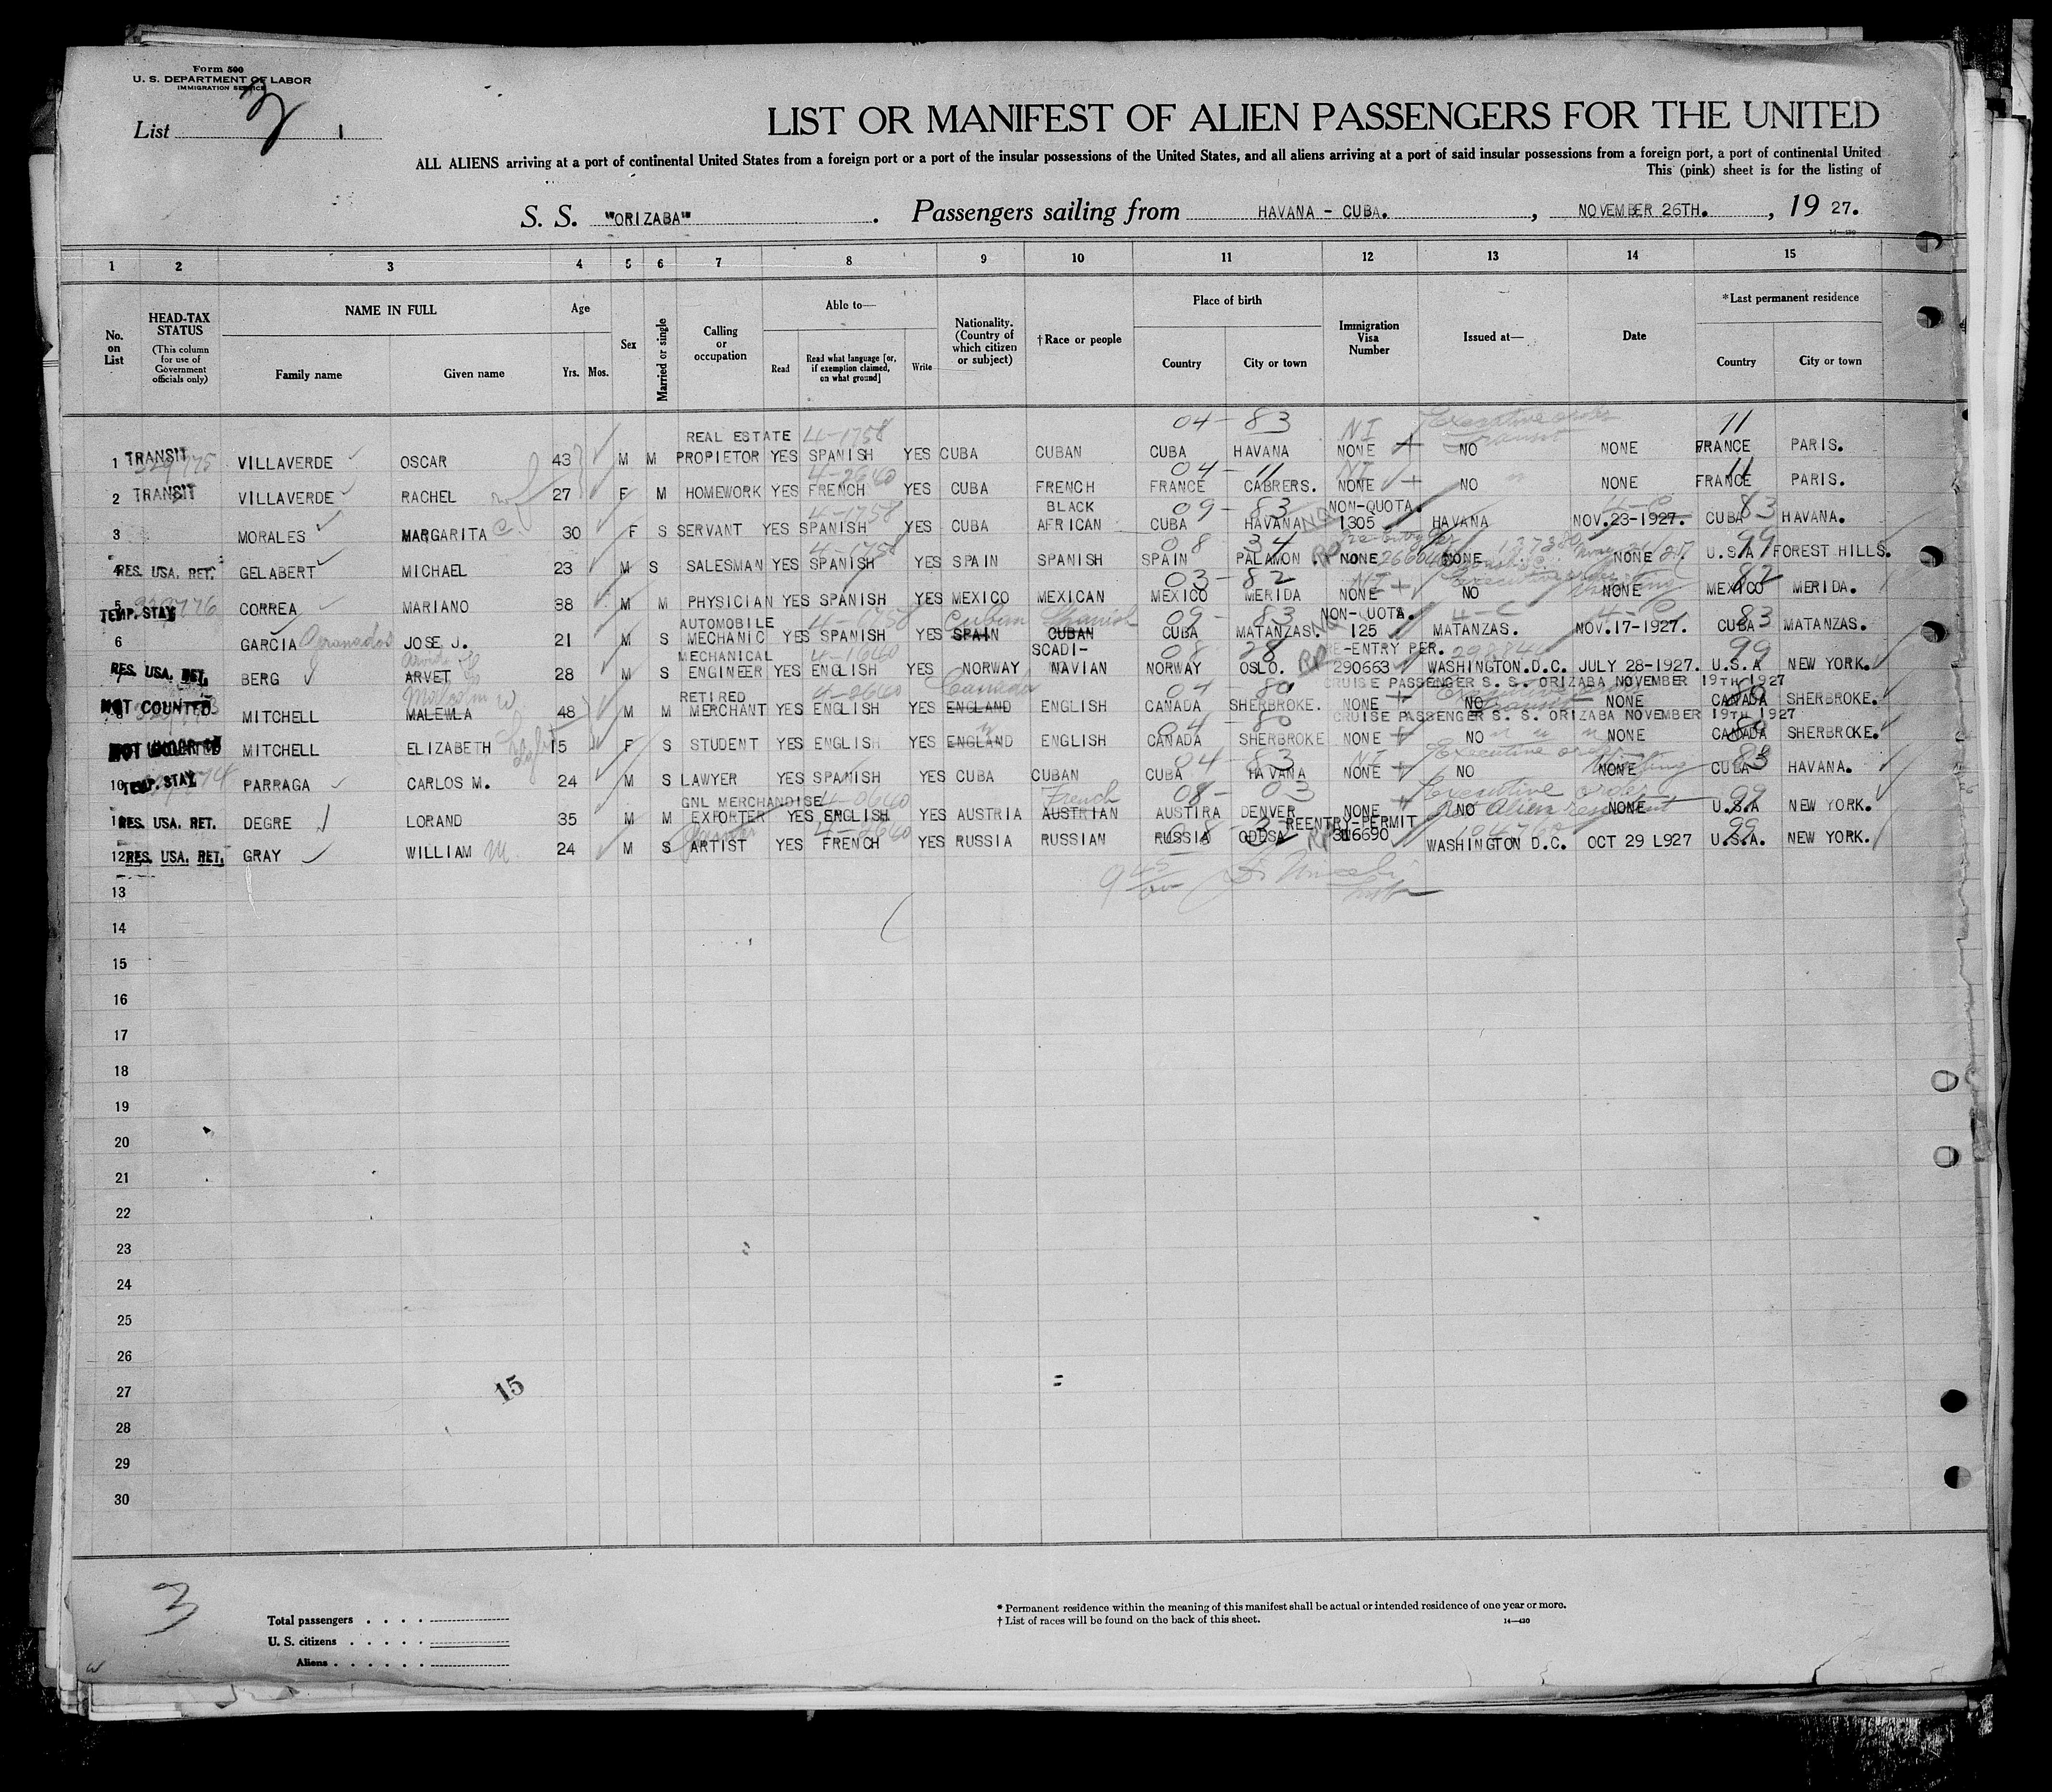 Form 500
U. S. DEPARTMENT OF LABOR
IMMIGRATION SERVICE
List 3 1
LIST OR MANIFEST OF ALIEN PASSENGERS FOR THE UNITED
ALL ALIENS arriving at a port of continental United States from a foreign port or a port of the insular possessions of the United States, and all aliens arriving at a port of said insular possessions from a foreign port, a port of continental United
This (pink) sheet is for the listing of
S. S. "ORIZABA" . Passengers sailing from HAVANA - CUBA. , NOVEMBER 26TH. , 19 27.
14-430
1 2 3 4 5 6 7 8 9 10 11 12 13 14 15
No. on List
HEAD-TAX STATUS (This column for use of Government officials only)
NAME IN FULL
Family name Given name
Age
Yrs. Mos.
Sex
Married or single
Calling or occupation
Able to—
Read Read what language [or, if exemption claimed, on what ground] Write
Nationality. (Country of which citizen or subject)
†Race or people
Place of birth
Country City or town
Immigration Visa Number
Issued at—
Date
*Last permanent residence
Country City or town
REAL ESTATE 4-1758 04-83 NI Executive order 11
1 TRANSIT VILLAVERDE OSCAR 43 M M PROPIETOR YES SPANISH YES CUBA CUBAN CUBA HAVANA NONE NO Transit NONE FRANCE PARIS.
4-2640 04-11 NI 11
2 TRANSIT VILLAVERDE RACHEL 27 F M HOMEWORK YES FRENCH YES CUBA FRENCH FRANCE CABRERS. NONE NO " NONE FRANCE PARIS.
4-1758 BLACK 09-83 NON-QUOTA. 4-C 83
3 MORALES MARGARITA C. 30 F S SERVANT YES SPANISH YES CUBA AFRICAN CUBA HAVANA 1305 HAVANA NOV.23-1927. CUBA HAVANA.
4-1758 08 34 RP 99
4 RES. USA. RET. GELABERT MICHAEL 23 M S SALESMAN YES SPANISH YES SPAIN SPANISH SPAIN PALAMON. NONE NONE NONE U.S.A FOREST HILLS.
03-82 NI Executive order 82
5 TEMP. STAY CORREA MARIANO 38 M M PHYSICIAN YES SPANISH YES MEXICO MEXICAN MEXICO MERIDA NONE NO NONE MEXICO MERIDA.
AUTOMOBILE 4-1758 Cuban Spanish 09-83 NON-QUOTA. 4-C 4-C 83
6 GARCIA Granados JOSE J. 21 M S MECHANIC YES SPANISH YES SPAIN CUBAN CUBA MATANZAS. 125 MATANZAS. NOV.17-1927. CUBA MATANZAS.
MECHANICAL 4-1640 SCADI- 08 28 RP RE-ENTRY PER. 99
7 RES. USA. RET. BERG ARVET 28 M S ENGINEER YES ENGLISH YES NORWAY NAVIAN NORWAY OSLO. 290663 WASHINGTON.D.C. JULY 28-1927. U.S.A NEW YORK.
CRUISE PASSENGER S. S. ORIZABA NOVEMBER 19TH 1927
Malcolm W RETIRED 4-2640 Canada 04-80 Executive order 80
8 NOT COUNTED MITCHELL MALEWLA 48 M M MERCHANT YES ENGLISH YES ENGLAND ENGLISH CANADA SHERBROKE. NONE NO Transit NONE CANADA SHERBROKE.
CRUISE PASSENGER S. S. ORIZABA NOVEMBER 19TH 1927
" 04-80 80
MITCHELL ELIZABETH 15 F S STUDENT YES ENGLISH YES ENGLAND ENGLISH CANADA SHERBROKE NONE NO " " " NONE CANADA SHERBROKE.
04-83 NI Executive order 83
10 TEMP. STAY PARRAGA CARLOS M. 24 M S LAWYER YES SPANISH YES CUBA CUBAN CUBA HAVANA NONE NO NONE CUBA HAVANA.
GNL MERCHANDISE 4-0640 French 08-03 Executive order 99
RES. USA. RET. DEGRE LORAND 35 M M EXPORTER YES ENGLISH YES AUSTRIA AUSTRIAN AUSTIRA DENVER NONE NO Alien resident NONE U.S.A NEW YORK.
REENTRY-PERMIT 99
12 RES. USA. RET. GRAY WILLIAM M 24 M S ARTIST YES FRENCH YES RUSSIA RUSSIAN RUSSIA ODESA RP 316690 WASHINGTON D.C. OCT 29 L927 U.S.A. NEW YORK.
13
14
15
16
17
18
19
20
21
22
23
24
25
26
27
28
29
30
15
3
Total passengers
U. S. citizens
Aliens
* Permanent residence within the meaning of this manifest shall be actual or intended residence of one year or more.
† List of races will be found on the back of this sheet.
14-430